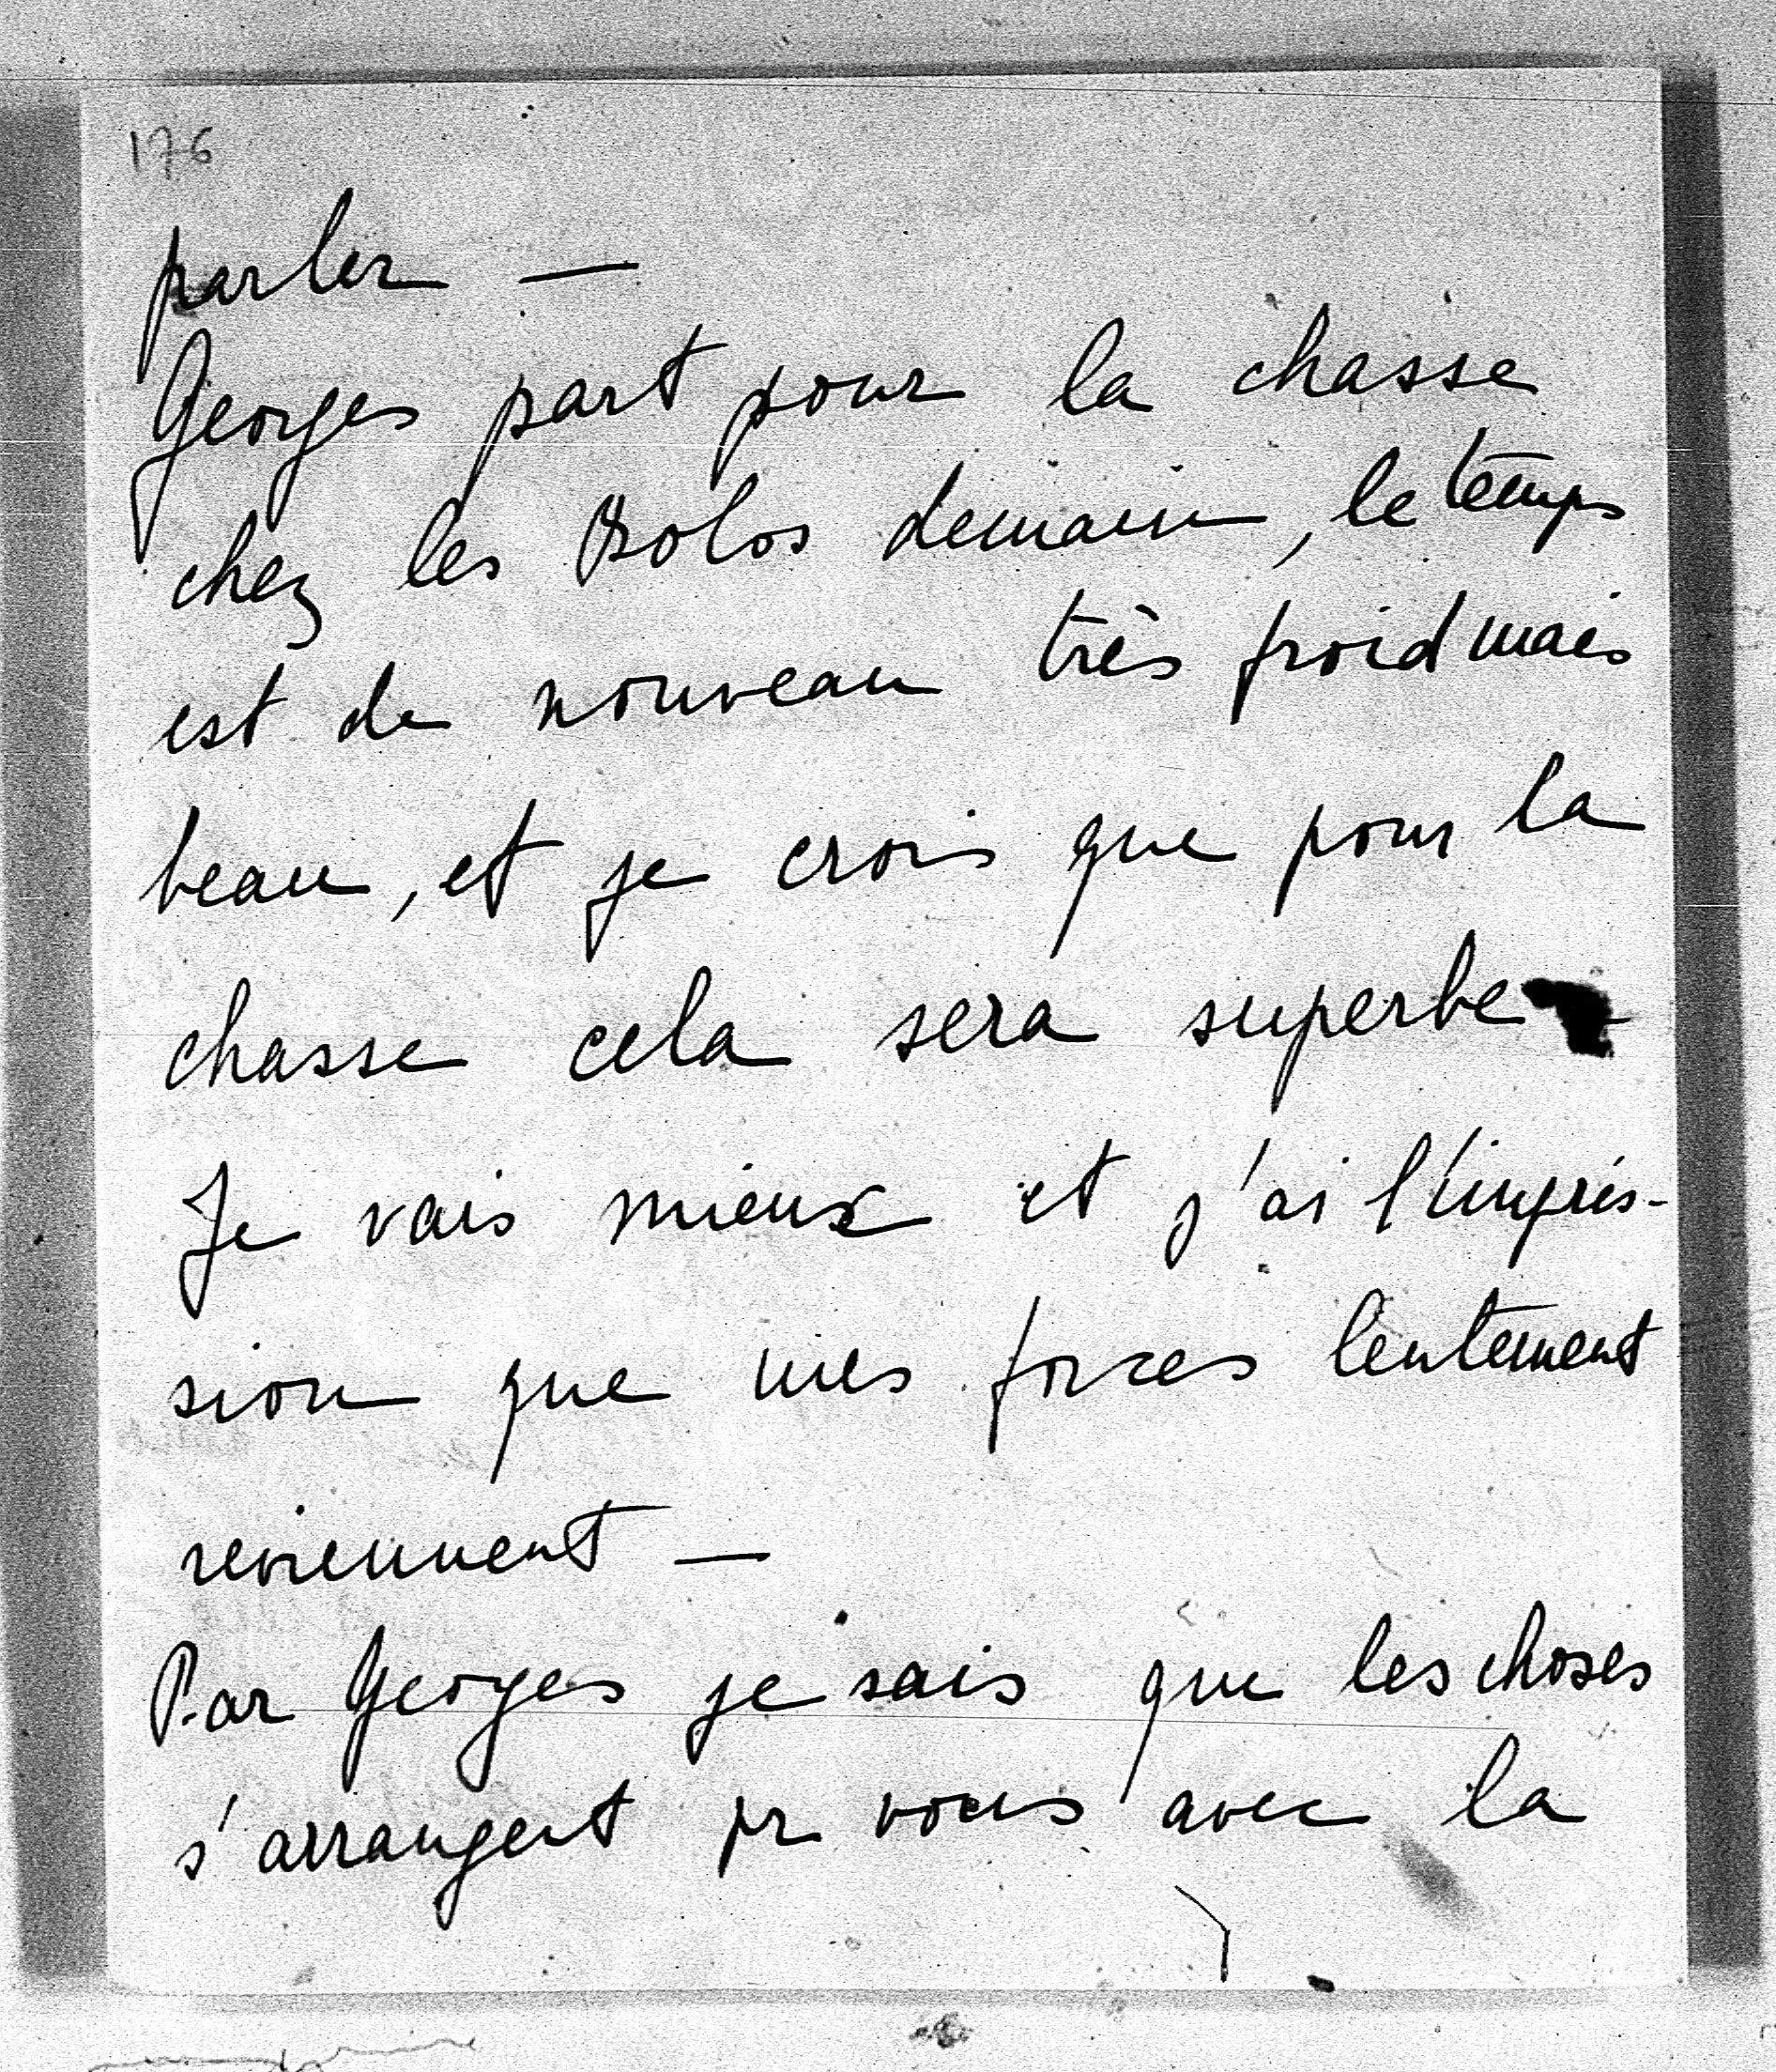 176
parler —
Georges part pour la chasse
chez les demain, le temps
est de nouveau très froid mais
beau, et je crois que pour la
chasse cela sera superbe —
Je vais mieux et j'ai l'impres-
sion que mes forces lentement
reviennent —
Par Georges je sais que les choses
s'arrangent pr vous avec la